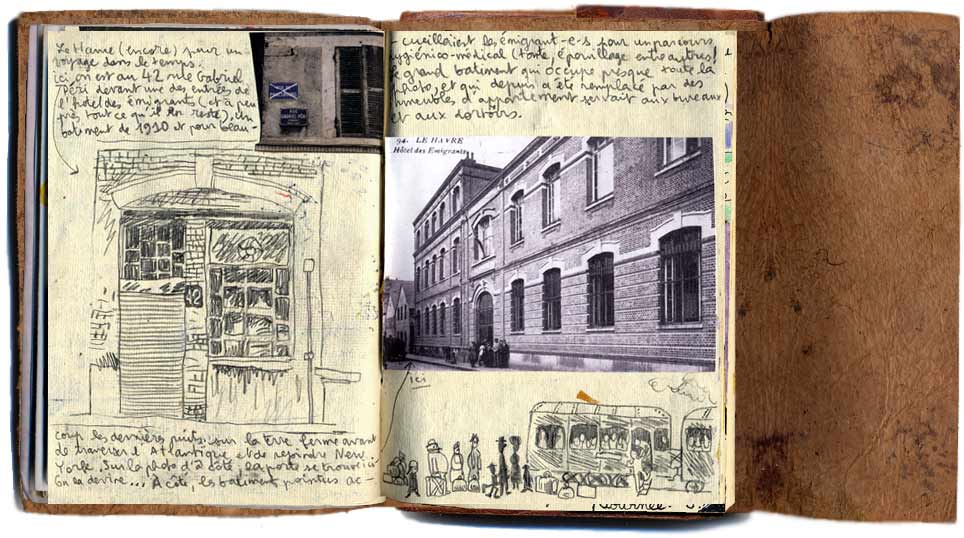 Le Havre (encore) pour un
voyage dans le temps:
ici on est au 42 rue Gabriel
Péri devant une des entrées de
l'hôtel des émigrants (et à peu
près tout ce qu'il en reste), un
bâtiment de 1910 et pour beau-
42
coup les dernières nuits sur la terre ferme avant
de traverser l'Atlantique et de rejoindre New
York. Sur la photo d'à côté, la porte se trouve ici
(on la devine... A côté, les bâtiment pointus ac-
cueillaient les émigrant-e-s pour un parcours
hygiénico-médical (tonte, épouillage entre autres!
le grand bâtiment qui occupe presque toute la
photo, et qui depuis a été remplacé par des
immeubles d'appartement servait aux bureaux
et aux dortoirs.
94. LE HAVRE
Hôtel des Emigrants
ici
Tournée